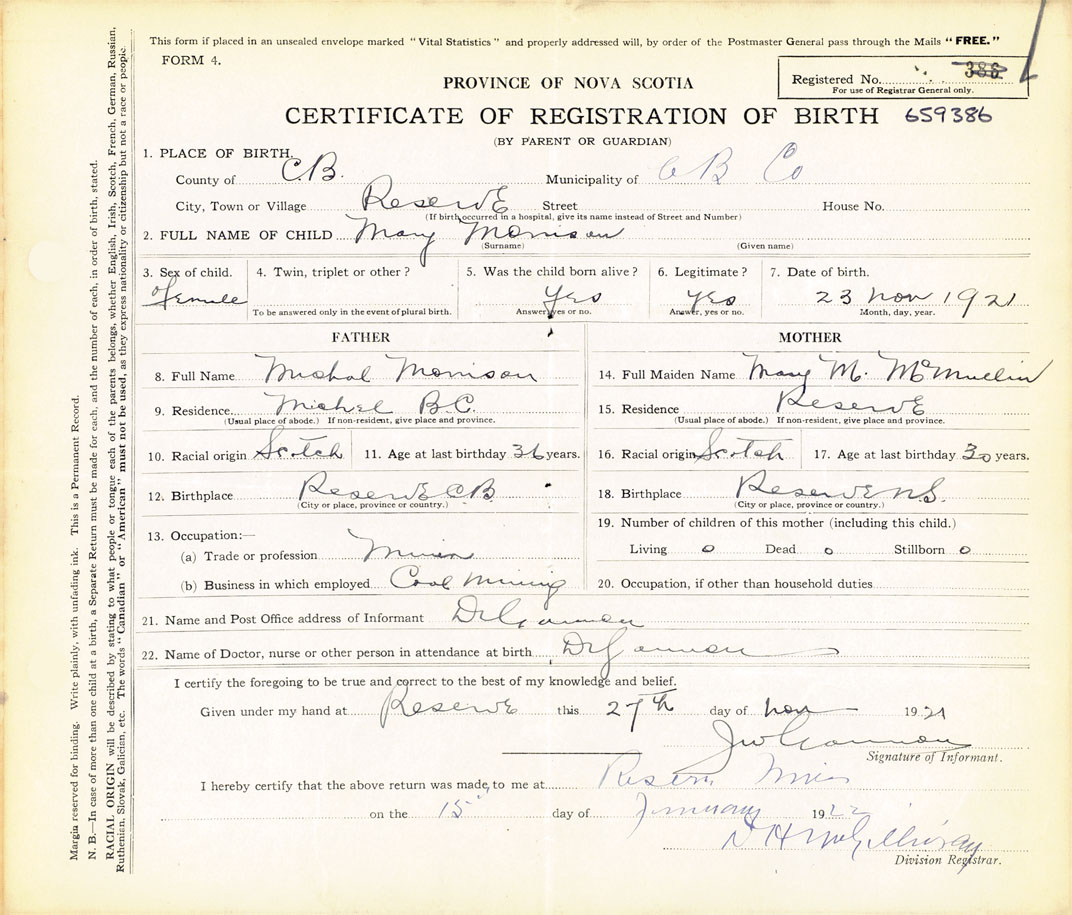 This form if placed in an unsealed envelope marked "Vital Statistics" and properly addressed will, by order of the Postmaster General pass through the Mails "FREE."
FORM 4.
Registered No. 386
For use of Registrar General only.
PROVINCE OF NOVA SCOTIA
CERTIFICATE OF REGISTRATION OF BIRTH 659386
(BY PARENT OR GUARDIAN)
1. PLACE OF BIRTH,
County of C.B. Municipality of C B Co
City, Town or Village Reserve Street House No.
(If birth occurred in a hospital, give its name instead of Street and Number)
2. FULL NAME OF CHILD Mary Morrison
(Surname) (Given name)
3. Sex of child. 4. Twin, triplet or other? 5. Was the child born alive? 6. Legitimate? 7. Date of birth.
female Yes Yes 23 Nov 1921
To be answered only in the event of plural birth. Answer, yes or no. Answer, yes or no. Month, day, year.
FATHER
8. Full Name Michal Morrison
9. Residence Michel B.C.
(Usual place of abode.) If non-resident, give place and province.
10. Racial origin Scotch 11. Age at last birthday 36 years.
12. Birthplace Reserve C.B.
(City or place, province or country.)
13. Occupation:—
(a) Trade or profession Miner
(b) Business in which employed Coal Mining
MOTHER
14. Full Maiden Name Mary M. McMullin
15. Residence Reserve
(Usual place of abode.) If non-resident, give place and province.
16. Racial origin Scotch 17. Age at last birthday 30 years.
18. Birthplace Reserve N.S.
(City or place, province or country.)
19. Number of children of this mother (including this child.)
Living 0 Dead 0 Stillborn 0
20. Occupation, if other than household duties
21. Name and Post Office address of Informant Dr
22. Name of Doctor, nurse or other person in attendance at birth Dr
I certify the foregoing to be true and correct to the best of my knowledge and belief.
Given under my hand at Reserve this 27th day of Nov 1921
Signature of Informant.
I hereby certify that the above return was made, to me at Reserve Mines
on the 15 day of January 1922
Division Registrar.
Margin reserved for binding. Write plainly, with unfading ink. This is a Permanent Record.
N. B.—In case of more than one child at a birth, a Separate Return must be made for each, and the number of each, in order of birth, stated.
RACIAL ORIGIN will be described by stating to what people or tongue each of the parents belongs, whether English, Irish, Scotch, French, German, Russian,
Ruthenian, Slovak, Galician, etc. The words "Canadian" or "American" must not be used, as they express nationality or citizenship but not a race or people.